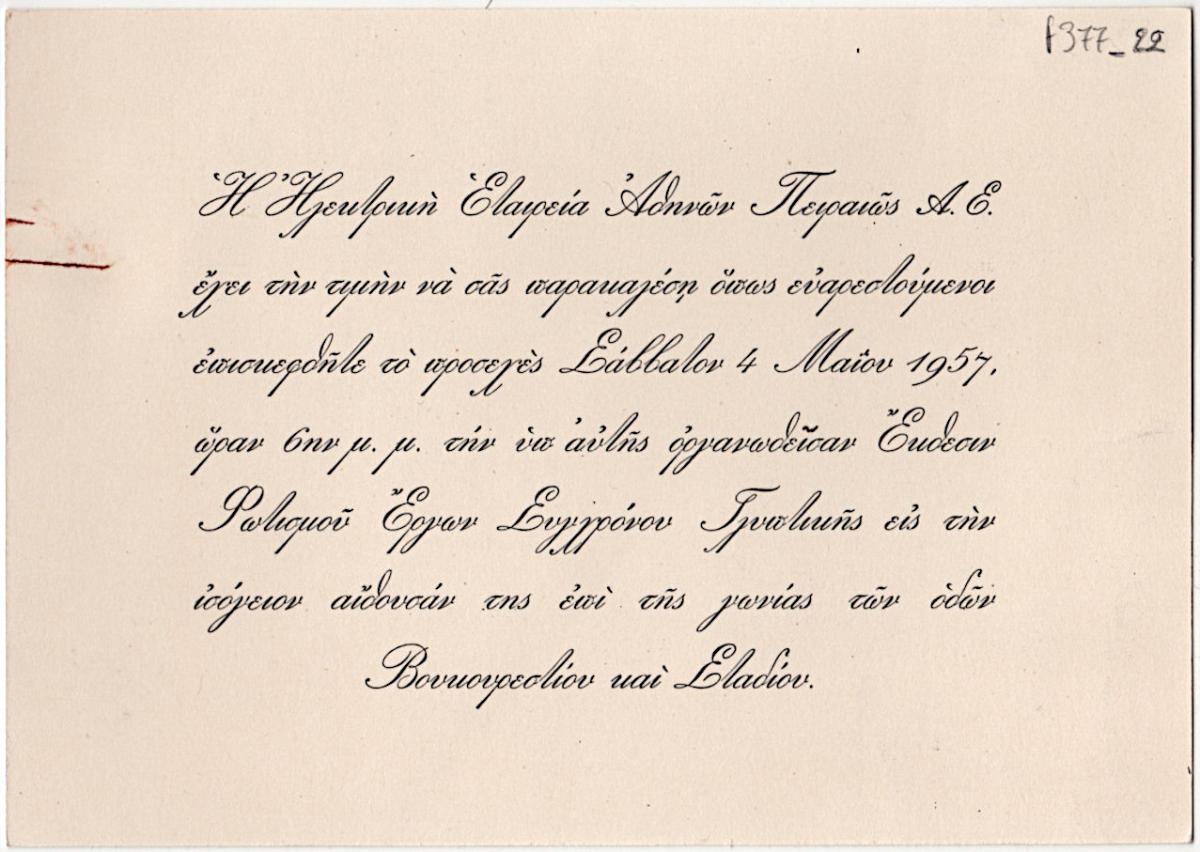 f377_22
Ἡ Ἠλεκτρικὴ Ἑταιρεία Ἀθηνῶν Πειραιῶς Α. Ε.
ἔχει τὴν τιμὴν νὰ σᾶς παρακαλέσῃ ὅπως εὐαρεστούμενοι
ἐπισκεφθῆτε τὸ προσεχὲς Σάββατον 4 Μαΐου 1957,
ὥραν 6ην μ. μ. τήν ὑπ αὐτῆς ὀργανωθεῖσαν Ἔκθεσιν
Φωτισμοῦ Ἔργων Συγχρόνου Γλυπτικῆς εἰς τὴν
ἰσόγειον αἴθουσάν της ἐπὶ τῆς γωνίας τῶν ὁδῶν
Βουκουρεστίου καὶ Σταδίου.